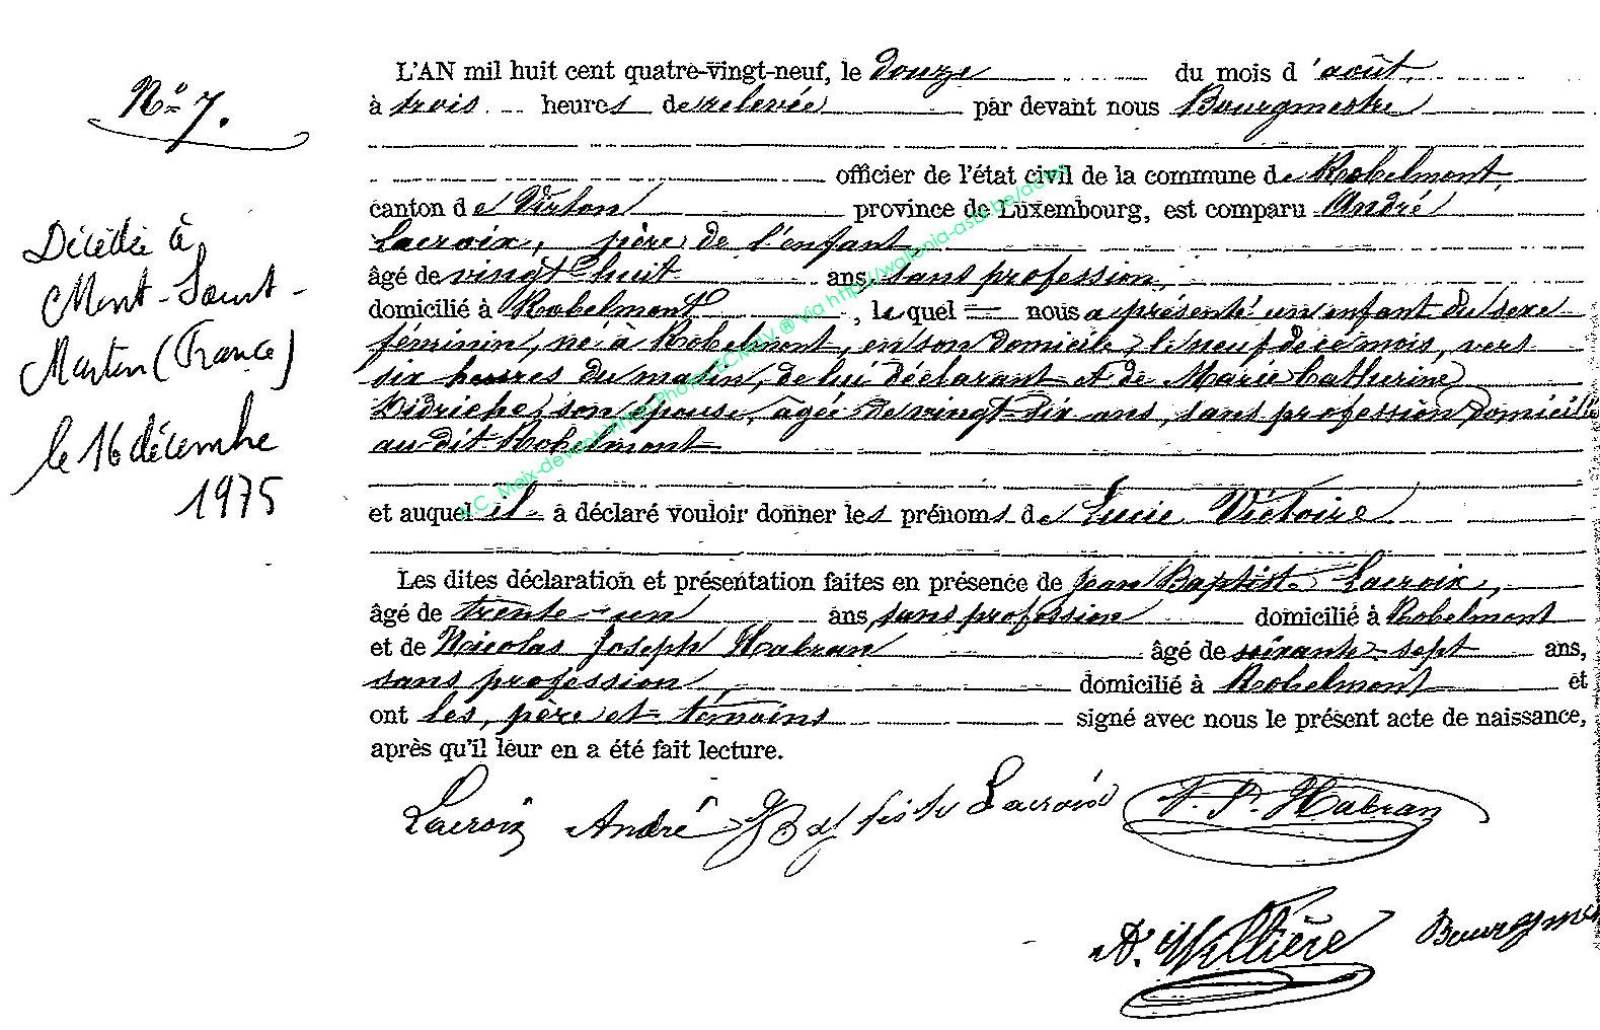 L'AN mil huit cent quatre-vingt-neuf, le douze du mois d'août,
à trois heures de relevée par devant nous Bourgmestre
officier de l'état civil de la commune de Robelmont,
canton de Virton province de Luxembourg, est comparu André
Lacroix, père de l'enfant
âgé de vingt huit ans, sans profession,
domicilié à Robelmont, lequel nous a présenté un enfant du sexe
féminin, né à Robelmont, en son domicile, le neuf de ce mois, vers
six heures du matin, de lui déclarant et de Marie Catherine
Didriche, son épouse, agée de vingt-six ans, sans profession domicilié
au dit Robelmont
et auquel il a déclaré vouloir donner les prénoms de Lucie Victoire
Les dites déclaration et présentation faites en présence de Jean Baptiste Lacroix,
âgé de trente-un ans, sans profession domicilié à Robelmont
et de Nicolas Joseph Habran âgé de soixante-sept ans,
sans profession domicilié à Robelmont et
ont les, père et témoins signé avec nous le présent acte de naissance,
après qu'il leur en a été fait lecture.
Lacroix André Lacroix Habran
A. Bourgm
No 7.
Décédée à
Mont-Saint-
Martin (France)
le 16 décembre
1975